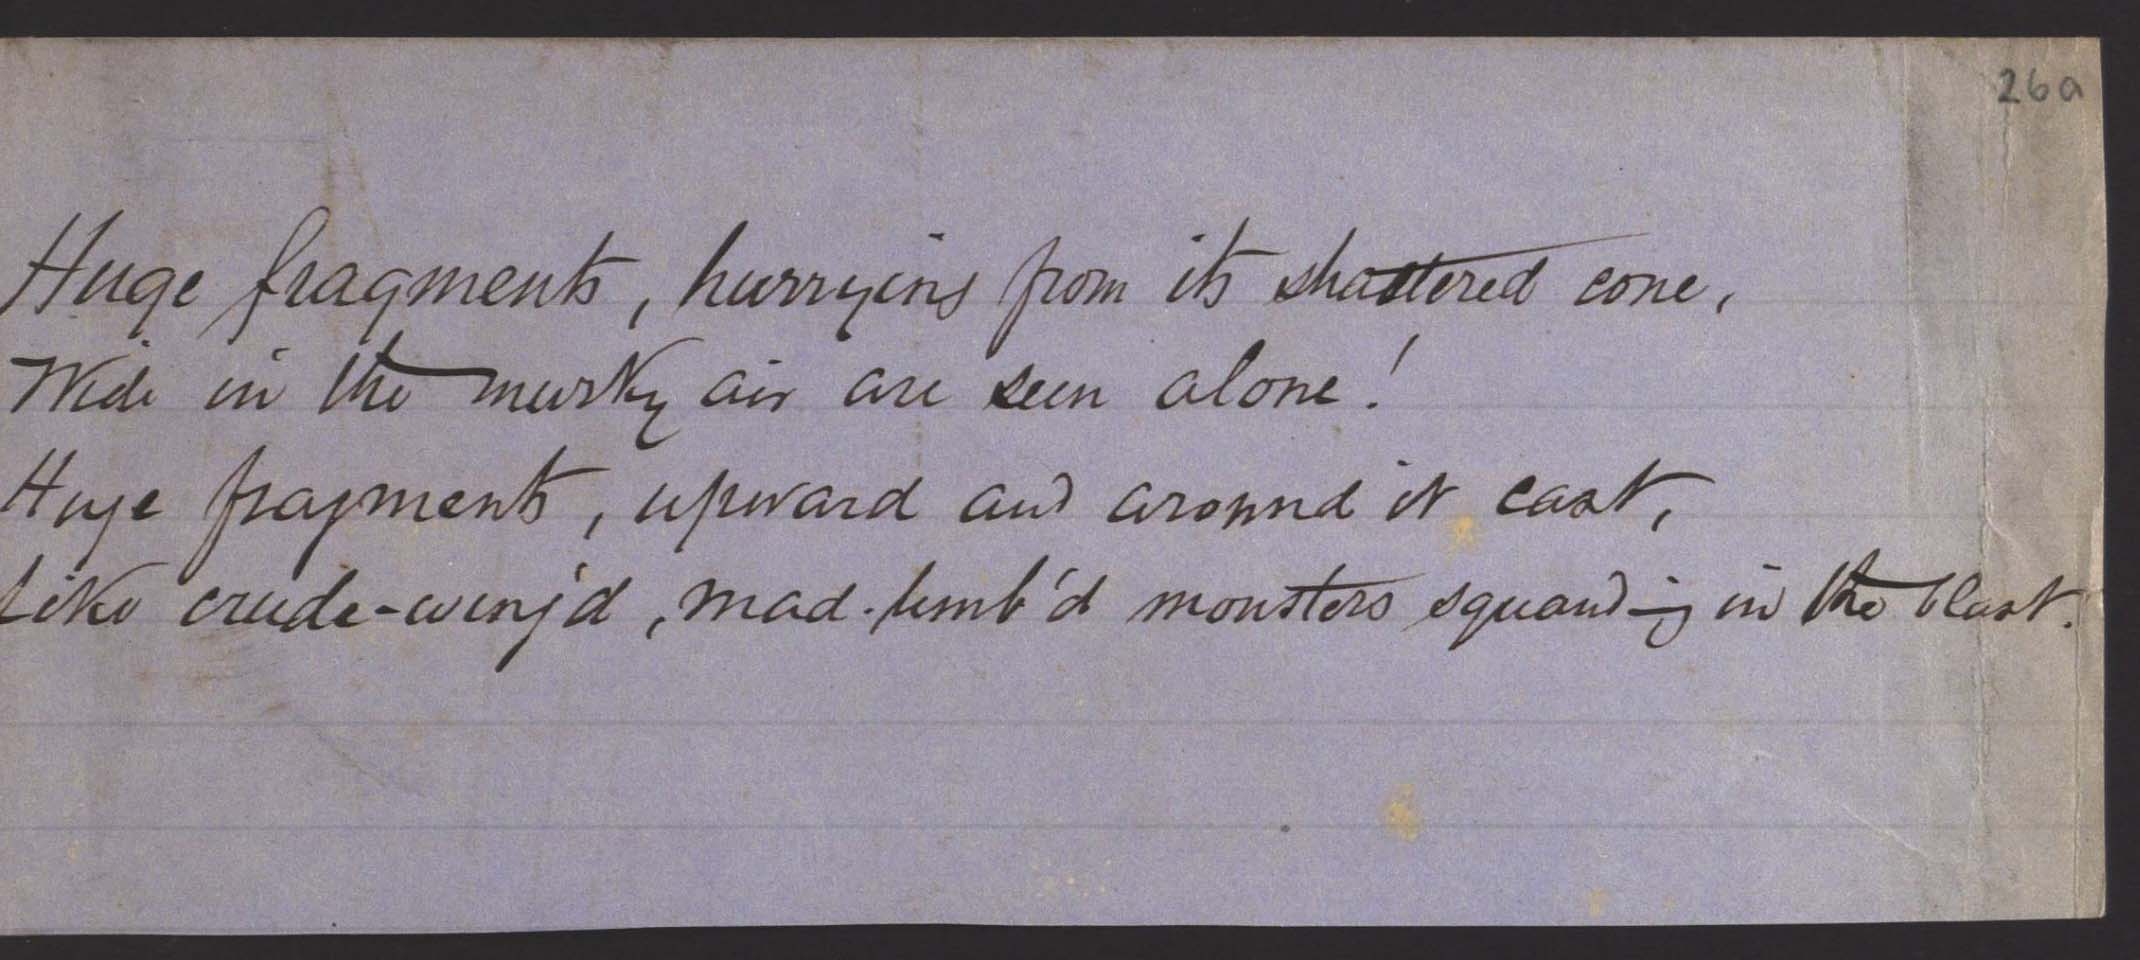 26a
Huge fragments, hurrying from its shattered cone,
Wide in the murky air are seen alone!
Huge fragments, upward and around it cast,
Like crude-wing'd, mad-limb'd monsters squanding in the blast.